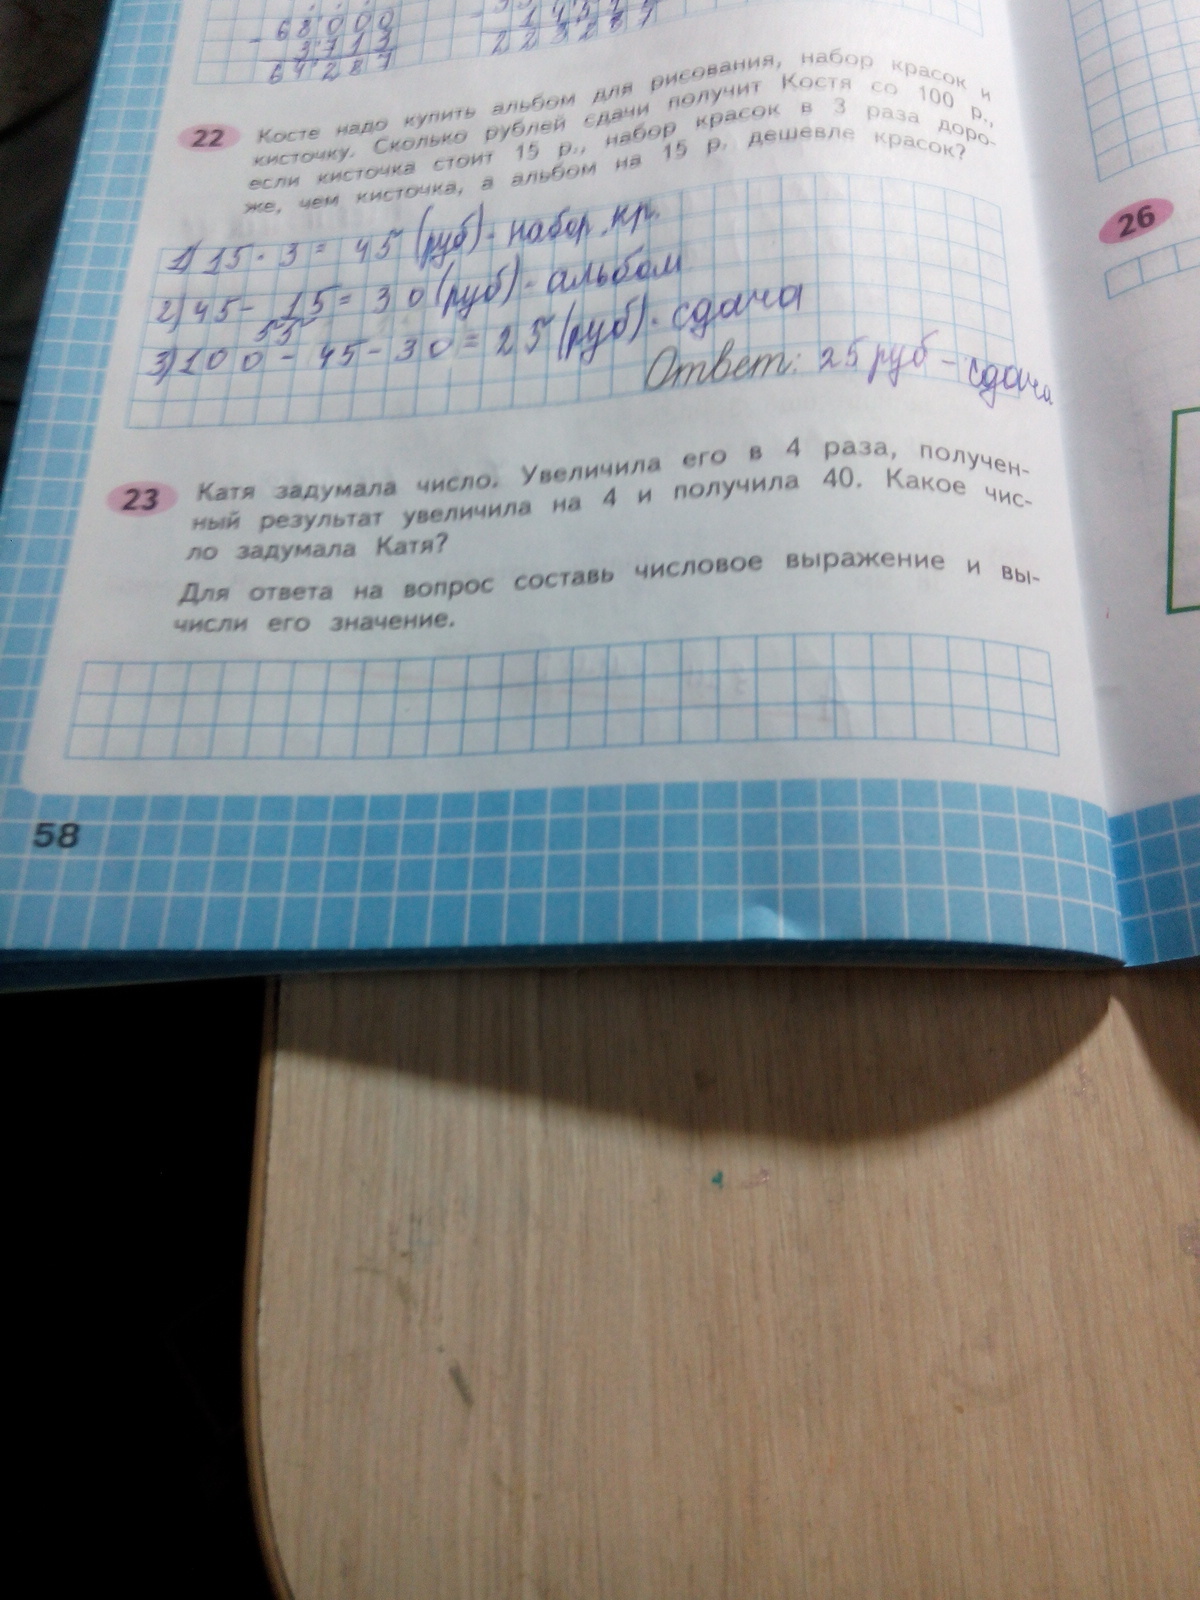 68000
- 3713
64287
22 Косте надо купить альбом для рисования, набор красок и
кисточку. Сколько рублей сдачи получит Костя со 100 р.,
если кисточка стоит 15 р., набор красок в 3 раза доро-
же, чем кисточка, а альбом на 15 р. дешевле красок?
1) 15 · 3 = 45 (руб) - набор. кр.
2) 45 - 15 = 30 (руб) - альбом
55
3) 100 - 45 - 30 = 25 (руб) - сдача
Ответ: 25 руб - сдача
23 Катя задумала число. Увеличила его в 4 раза, получен-
ный результат увеличила на 4 и получила 40. Какое чис-
ло задумала Катя?
Для ответа на вопрос составь числовое выражение и вы-
числи его значение.
58
26